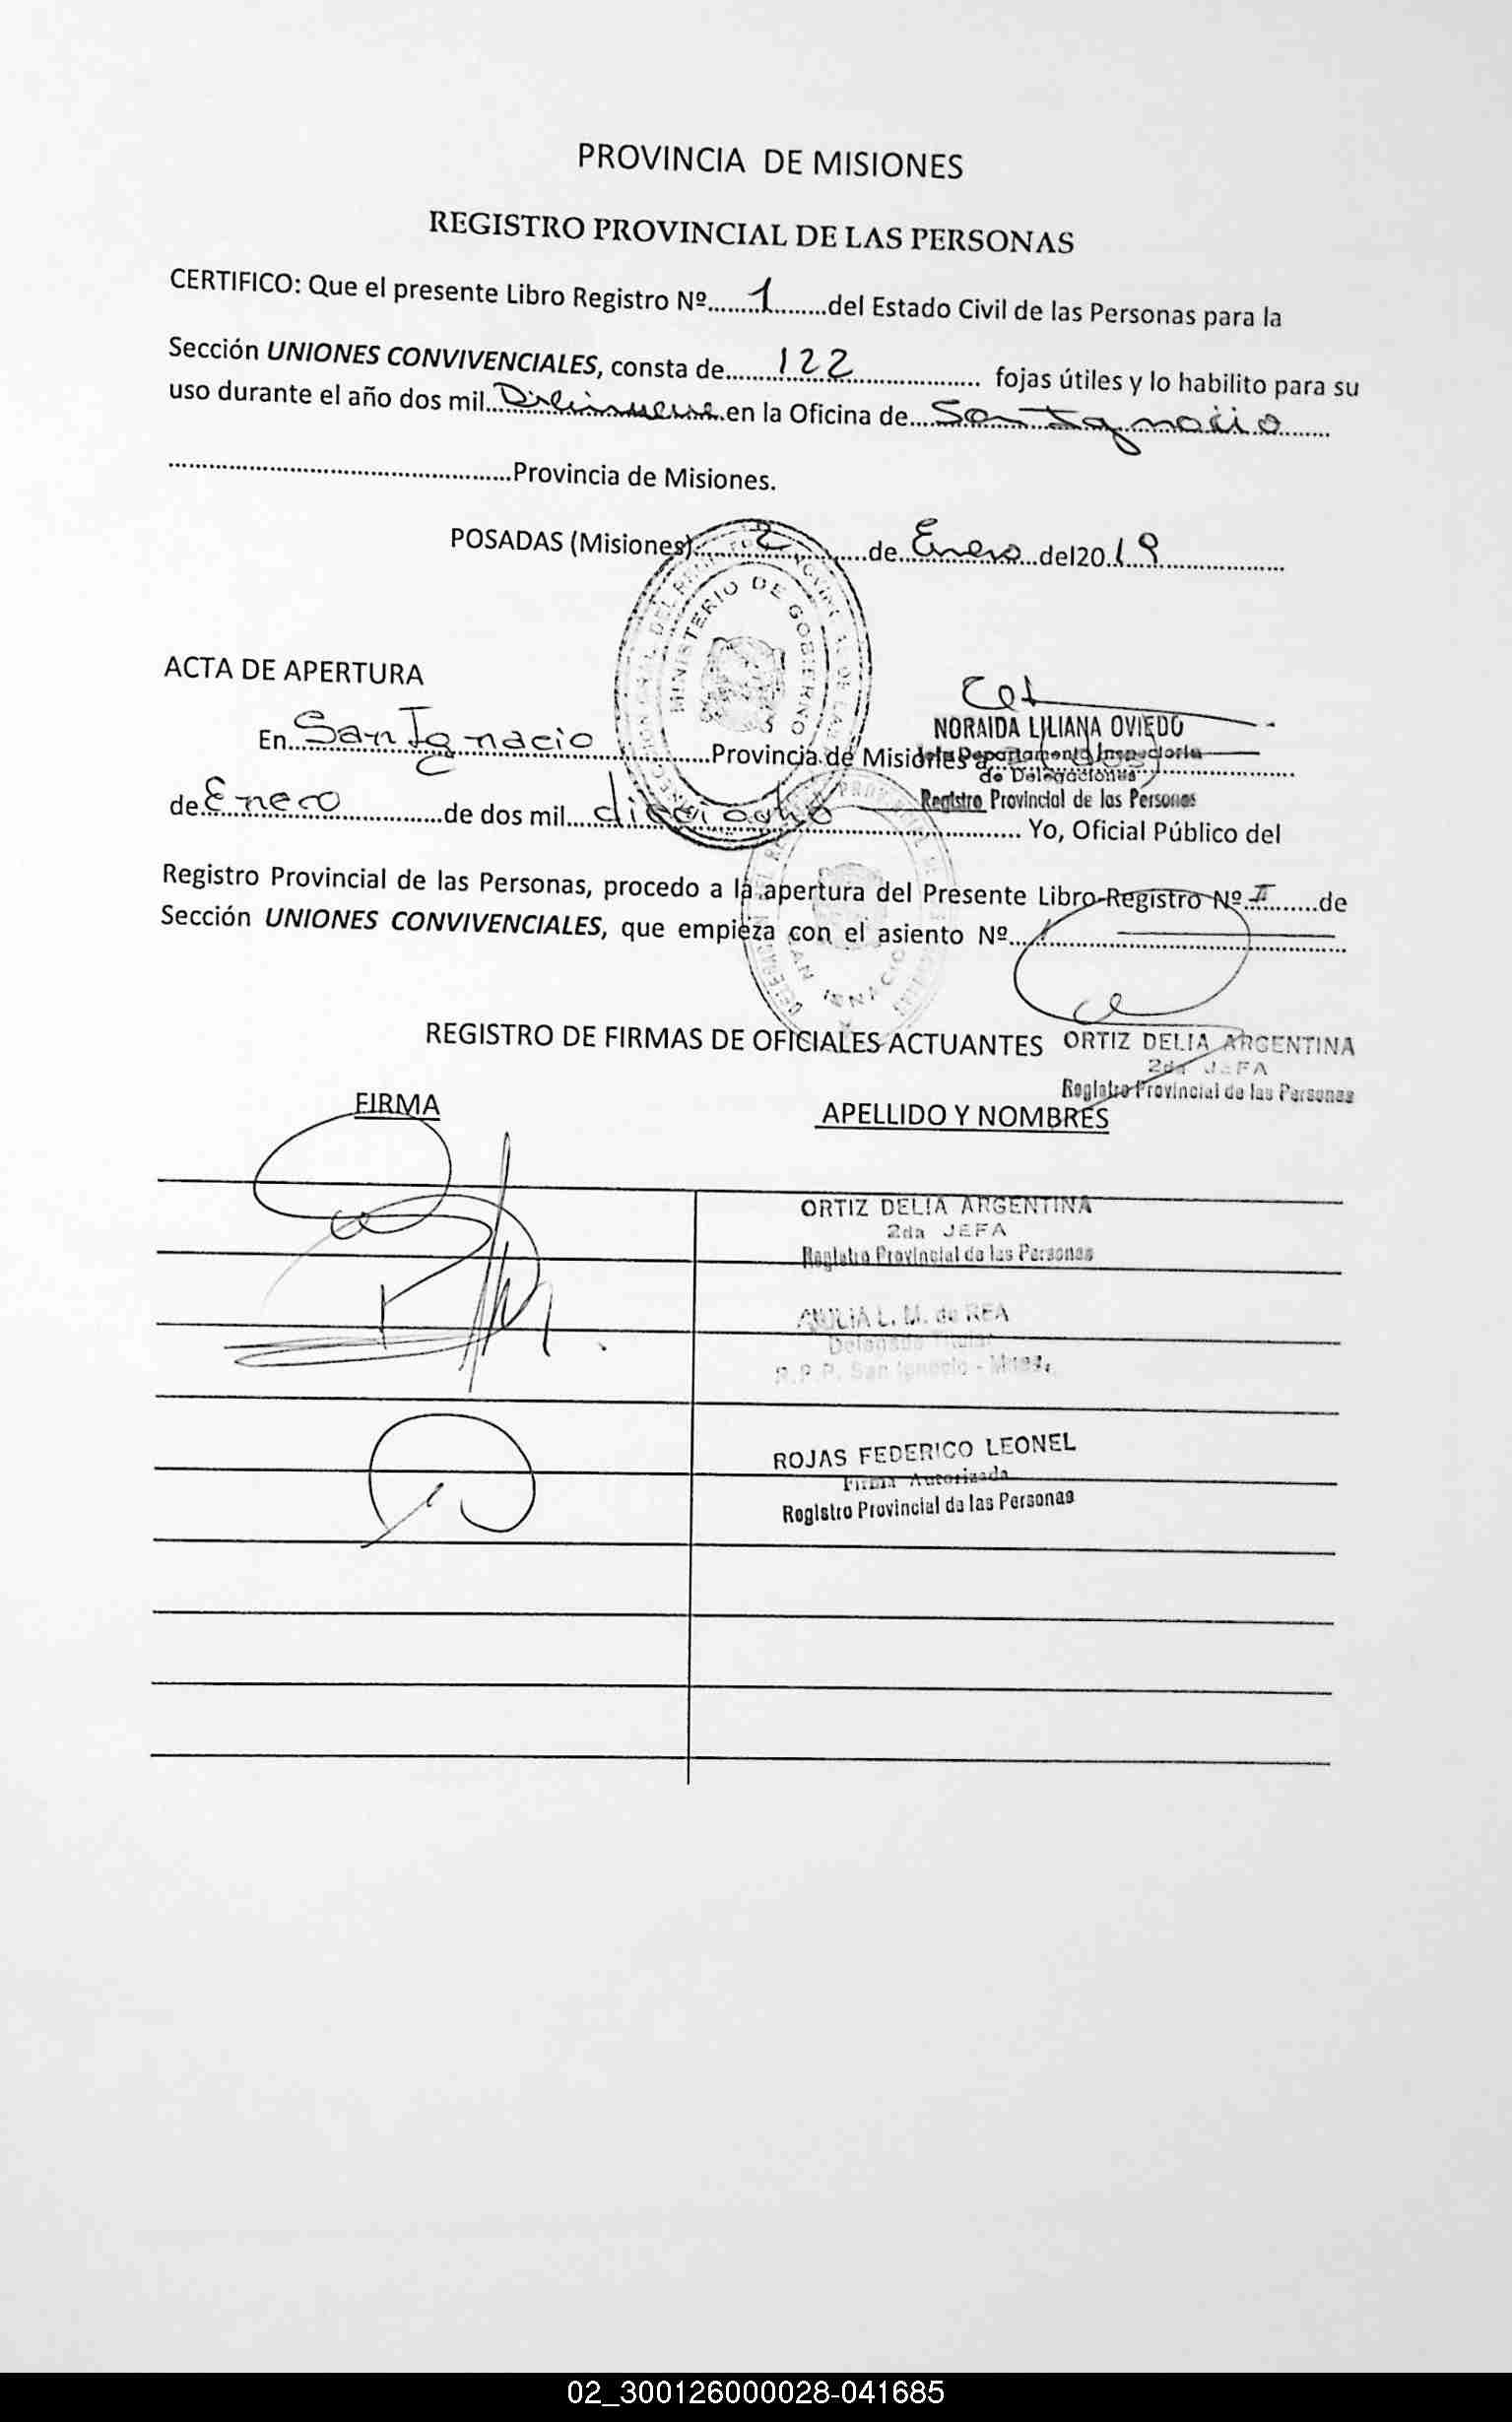 PROVINCIA DE MISIONES
REGISTRO PROVINCIAL DE LAS PERSONAS
CERTIFICO: Que el presente Libro Registro Nº........1........del Estado Civil de las Personas para la
Sección UNIONES CONVIVENCIALES, consta de........122........ fojas útiles y lo habilito para su
uso durante el año dos mil...Diecinueve.en la Oficina de....San Ignacio......
...........................................Provincia de Misiones.
POSADAS (Misiones)........2........de..Enero..del20.19................
MINISTERIO DE GOBIERNO
ACTA DE APERTURA
NORAIDA LILIANA OVIEDO
En...San Ignacio..............Provincia de Misiones a
Departamento Inspectoria
de Delegaciones
Registro Provincial de las Personas
de.Enero............de dos mil....dieciocho........................ Yo, Oficial Público del
Registro Provincial de las Personas, procedo a la apertura del Presente Libro-Registro Nº.I.......de
Sección UNIONES CONVIVENCIALES, que empieza con el asiento Nº....1........................
SAN IGNACIO
REGISTRO DE FIRMAS DE OFICIALES ACTUANTES
ORTIZ DELIA ARGENTINA
2da JEFA
Registro Provincial de las Personas
FIRMA
APELLIDO Y NOMBRES
ORTIZ DELIA ARGENTINA
2da JEFA
Registro Provincial de las Personas
L. M. de REA
R.P.P. San Ignacio - Mnes.
ROJAS FEDERICO LEONEL
Firma Autorizada
Registro Provincial de las Personas
02_300126000028-041685